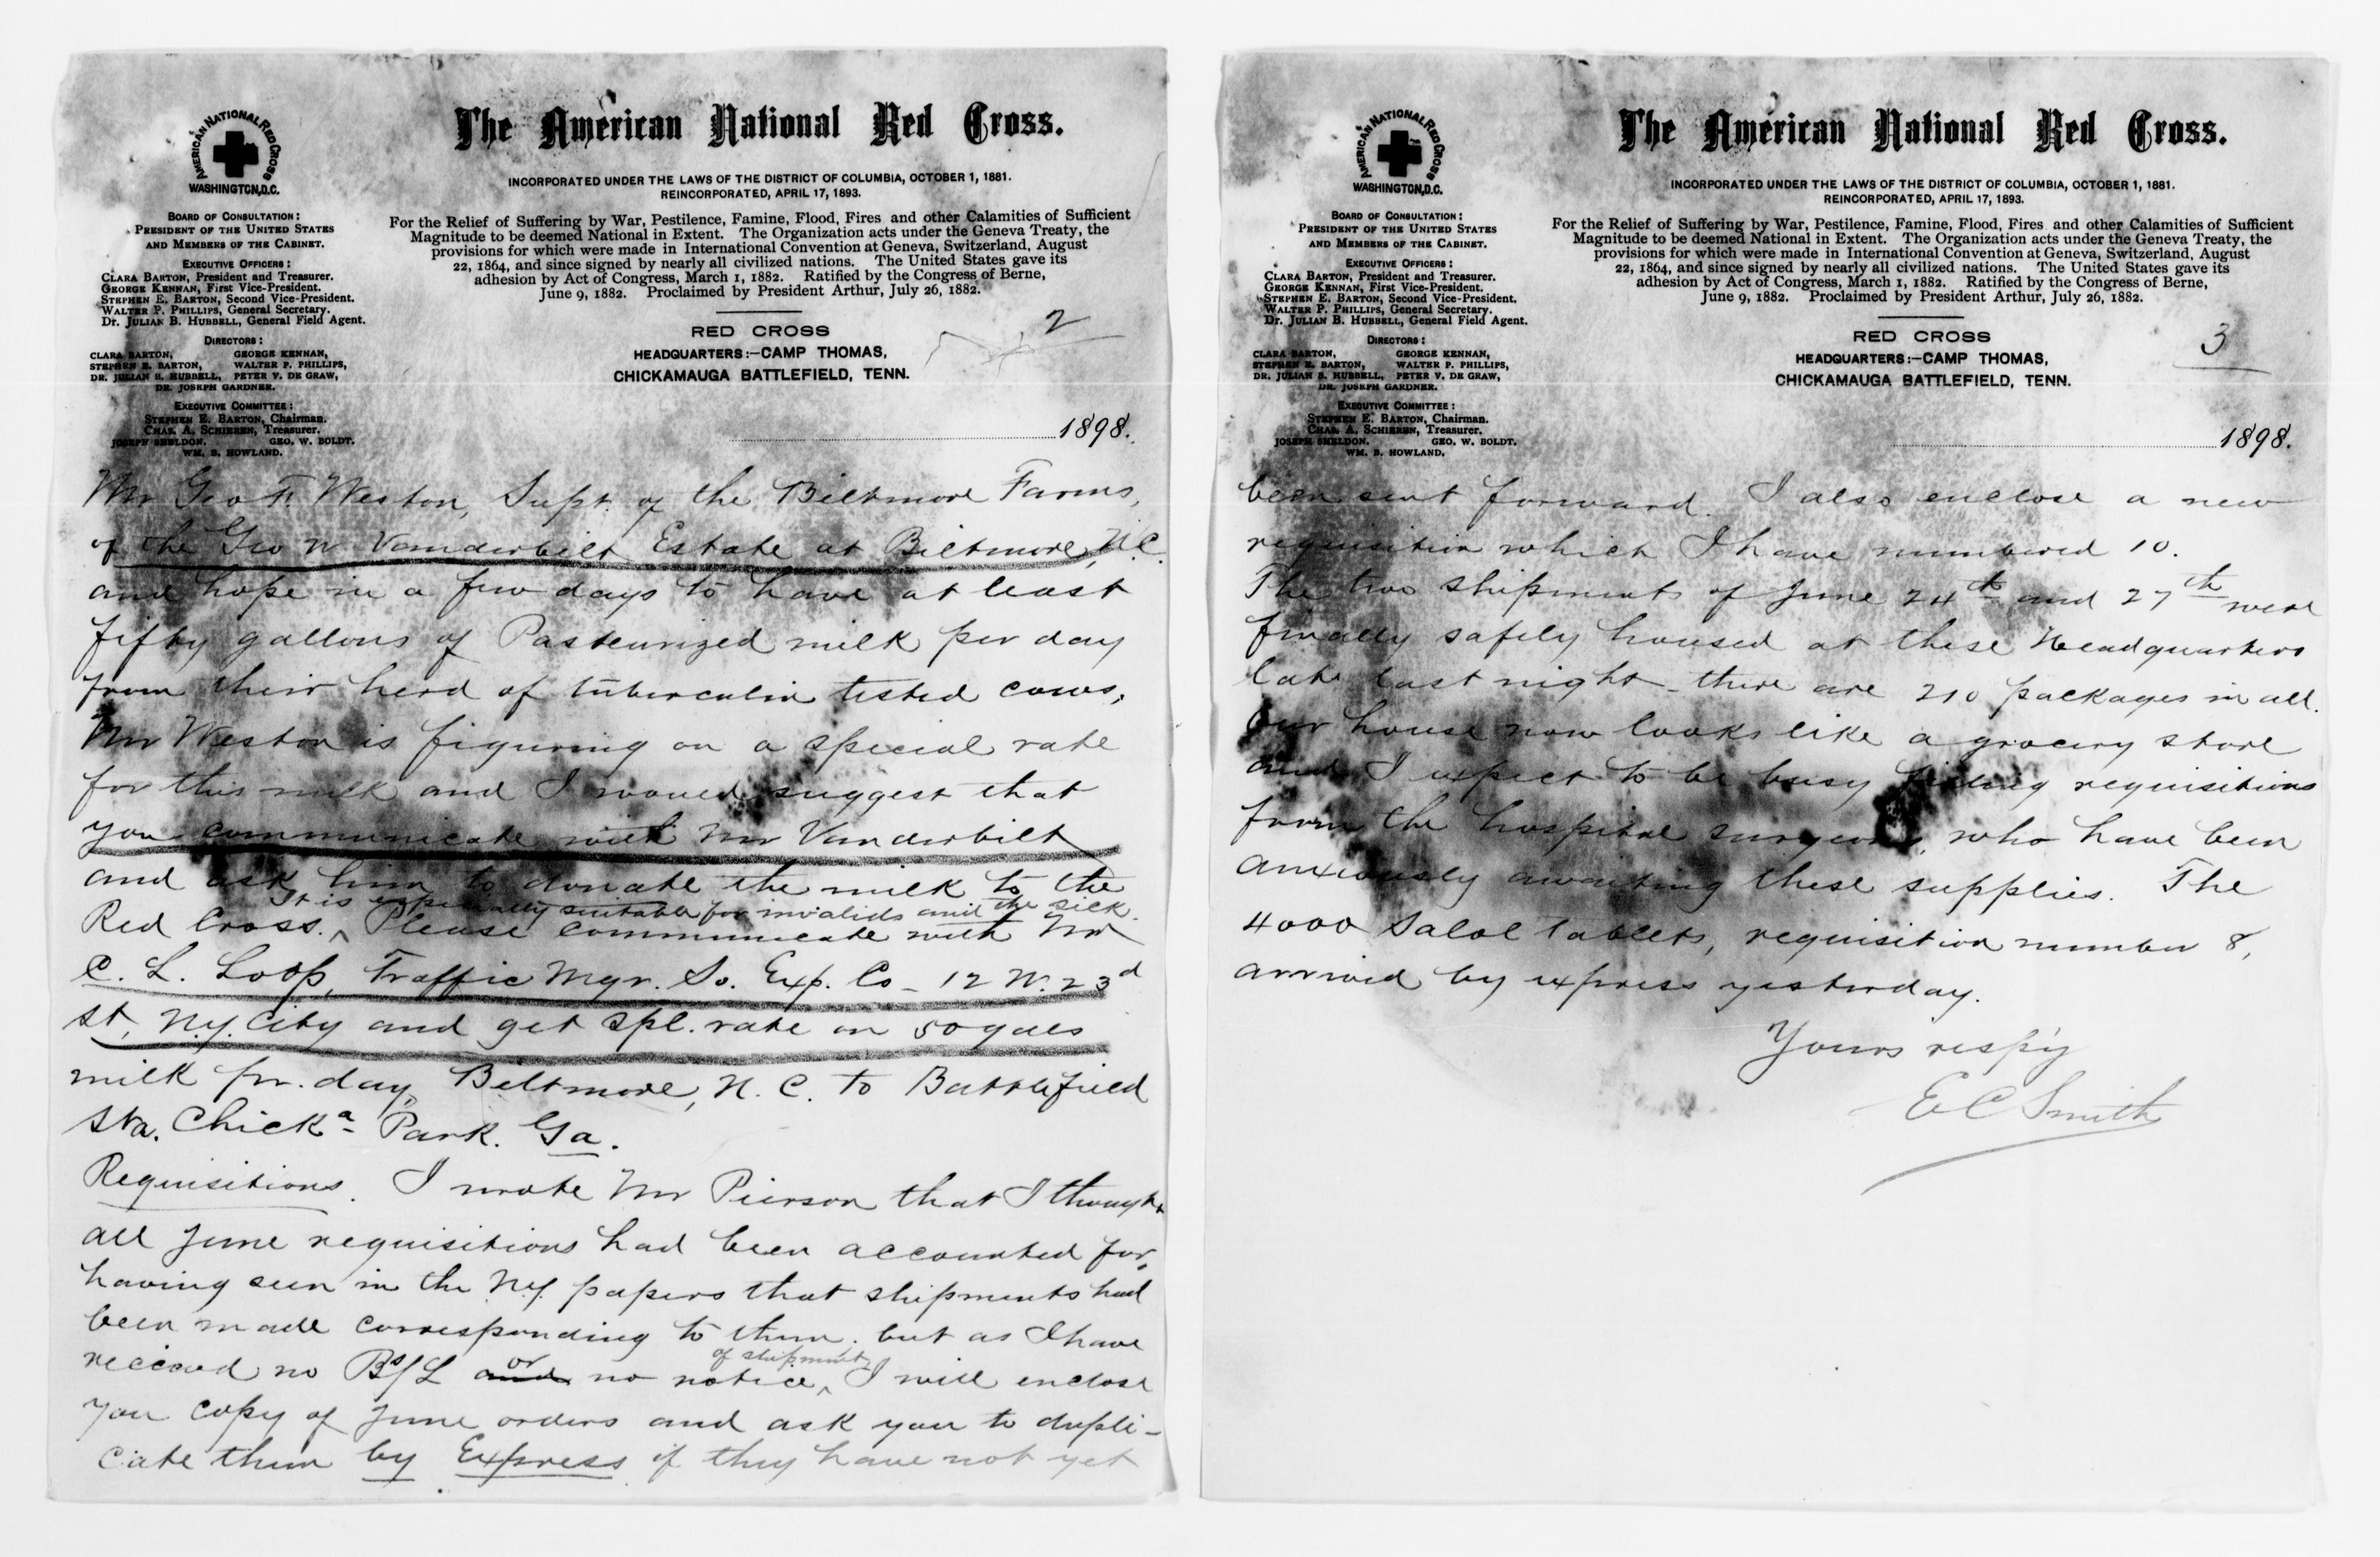 The American National Red Cross.
AMERICAN NATIONAL RED CROSS
WASHINGTON, D.C.
INCORPORATED UNDER THE LAWS OF THE DISTRICT OF COLUMBIA, OCTOBER 1, 1881.
REINCORPORATED, APRIL 17, 1893.
For the Relief of Suffering by War, Pestilence, Famine, Flood, Fires and other Calamities of Sufficient
Magnitude to be deemed National in Extent. The Organization acts under the Geneva Treaty, the
provisions for which were made in International Convention at Geneva, Switzerland, August
22, 1864, and since signed by nearly all civilized nations. The United States gave its
adhesion by Act of Congress, March 1, 1882. Ratified by the Congress of Berne,
June 9, 1882. Proclaimed by President Arthur, July 26, 1882.
BOARD OF CONSULTATION:
PRESIDENT OF THE UNITED STATES
AND MEMBERS OF THE CABINET.
EXECUTIVE OFFICERS:
CLARA BARTON, President and Treasurer.
GEORGE KENNAN, First Vice-President.
STEPHEN E. BARTON, Second Vice-President.
WALTER P. PHILLIPS, General Secretary.
Dr. JULIAN B. HUBBELL, General Field Agent.
DIRECTORS:
CLARA BARTON, GEORGE KENNAN,
STEPHEN E. BARTON, WALTER P. PHILLIPS,
DR. JULIAN B. HUBBELL, PETER V. DE GRAW,
DR. JOSEPH GARDNER.
EXECUTIVE COMMITTEE:
STEPHEN E. BARTON, Chairman.
CHAS. A. SCHIEREN, Treasurer.
JOSEPH SHELDON. GEO. W. BOLDT.
WM. B. HOWLAND.
RED CROSS
HEADQUARTERS:—CAMP THOMAS,
CHICKAMAUGA BATTLEFIELD, TENN.
2
1898.
Mr Geo F. Weston, Supt. of the Biltmore Farms,
of the Geo W Vanderbilt Estate at Biltmore, N.C.
and hope in a few days to have at least
fifty gallons of Pasteurized milk per day
from their herd of tuberculin tested cows,
Mr Weston is figuring on a special rate
for this milk and I would suggest that
you communicate with Mr Vanderbilt
and ask him to donate the milk to the
It is especially suitable for invalids and the sick.
Red Cross. ^ Please communicate with Mr
C. L. Loop, Traffic Mgr. So. Exp. Co - 12 W. 23d
St, N.Y. City and get spl. rate on 50 gals
milk pr. day, Biltmore, N. C. to Battlefield
Sta. Chicka Park. Ga.
Requisitions. I wrote Mr Pierson that I thought
all June requisitions had been accounted for,
having seen in the N.Y. papers that shipments had
been made corresponding to them. but as I have
or of shipments
received no Bs/L and no notice, ^ I will enclose
you copy of June orders and ask you to dupli-
cate them by Express if they have not yet
The American National Red Cross.
AMERICAN NATIONAL RED CROSS
WASHINGTON, D.C.
INCORPORATED UNDER THE LAWS OF THE DISTRICT OF COLUMBIA, OCTOBER 1, 1881.
REINCORPORATED, APRIL 17, 1893.
For the Relief of Suffering by War, Pestilence, Famine, Flood, Fires and other Calamities of Sufficient
Magnitude to be deemed National in Extent. The Organization acts under the Geneva Treaty, the
provisions for which were made in International Convention at Geneva, Switzerland, August
22, 1864, and since signed by nearly all civilized nations. The United States gave its
adhesion by Act of Congress, March 1, 1882. Ratified by the Congress of Berne,
June 9, 1882. Proclaimed by President Arthur, July 26, 1882.
BOARD OF CONSULTATION:
PRESIDENT OF THE UNITED STATES
AND MEMBERS OF THE CABINET.
EXECUTIVE OFFICERS:
CLARA BARTON, President and Treasurer.
GEORGE KENNAN, First Vice-President.
STEPHEN E. BARTON, Second Vice-President.
WALTER P. PHILLIPS, General Secretary.
Dr. JULIAN B. HUBBELL, General Field Agent.
DIRECTORS:
CLARA BARTON, GEORGE KENNAN,
STEPHEN E. BARTON, WALTER P. PHILLIPS,
DR. JULIAN B. HUBBELL, PETER V. DE GRAW,
DR. JOSEPH GARDNER.
EXECUTIVE COMMITTEE:
STEPHEN E. BARTON, Chairman.
CHAS. A. SCHIEREN, Treasurer.
JOSEPH SHELDON. GEO. W. BOLDT.
WM. B. HOWLAND.
RED CROSS
HEADQUARTERS:—CAMP THOMAS,
CHICKAMAUGA BATTLEFIELD, TENN.
3
1898.
been sent forward. I also enclose a new
requisition which I have numbered 10.
The two shipments of June 24th and 27th were
finally safely housed at these Headquarters
late last night - there are 210 packages in all.
our house now looks like a grocery store
and I expect to be busy filling requisitions
from the hospital surgeons, who have been
anxiously awaiting these supplies. The
4000 Salol Tablets, requisition number 8,
arrived by express yesterday.
Yours respy
E C Smith